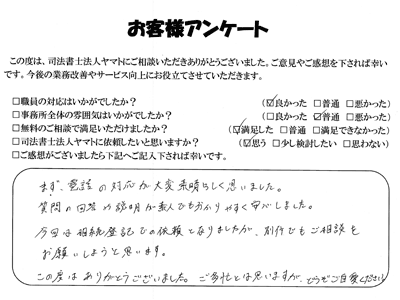 お客様アンケート
この度は、司法書士法人ヤマトにご相談いただきありがとうございました。ご意見やご感想を下されば幸い
です。今後の業務改善やサービス向上にお役立てさせていただきます。
□職員の対応はいかがでしたか？ （☑良かった □普通 □悪かった）
□事務所全体の雰囲気はいかがでしたか？ （□良かった ☑普通 □悪かった）
□無料のご相談で満足いただけましたか？ （☑満足した □普通 □満足できなかった）
□司法書士法人ヤマトに依頼したいと思いますか？ （☑思う □少し検討したい □思わない）
□ご感想がございましたら下記へご記入下されば幸いです。
まず、電話の対応が大変素晴らしく思いました。
質問の回答や説明が素人でも分かりやすく安心しました。
今回は相続登記での依頼となりましたが、別件でもご相談を
お願いしようと思います。
この度はありがとうございました。ご多忙とは思いますが、どうぞご自愛ください